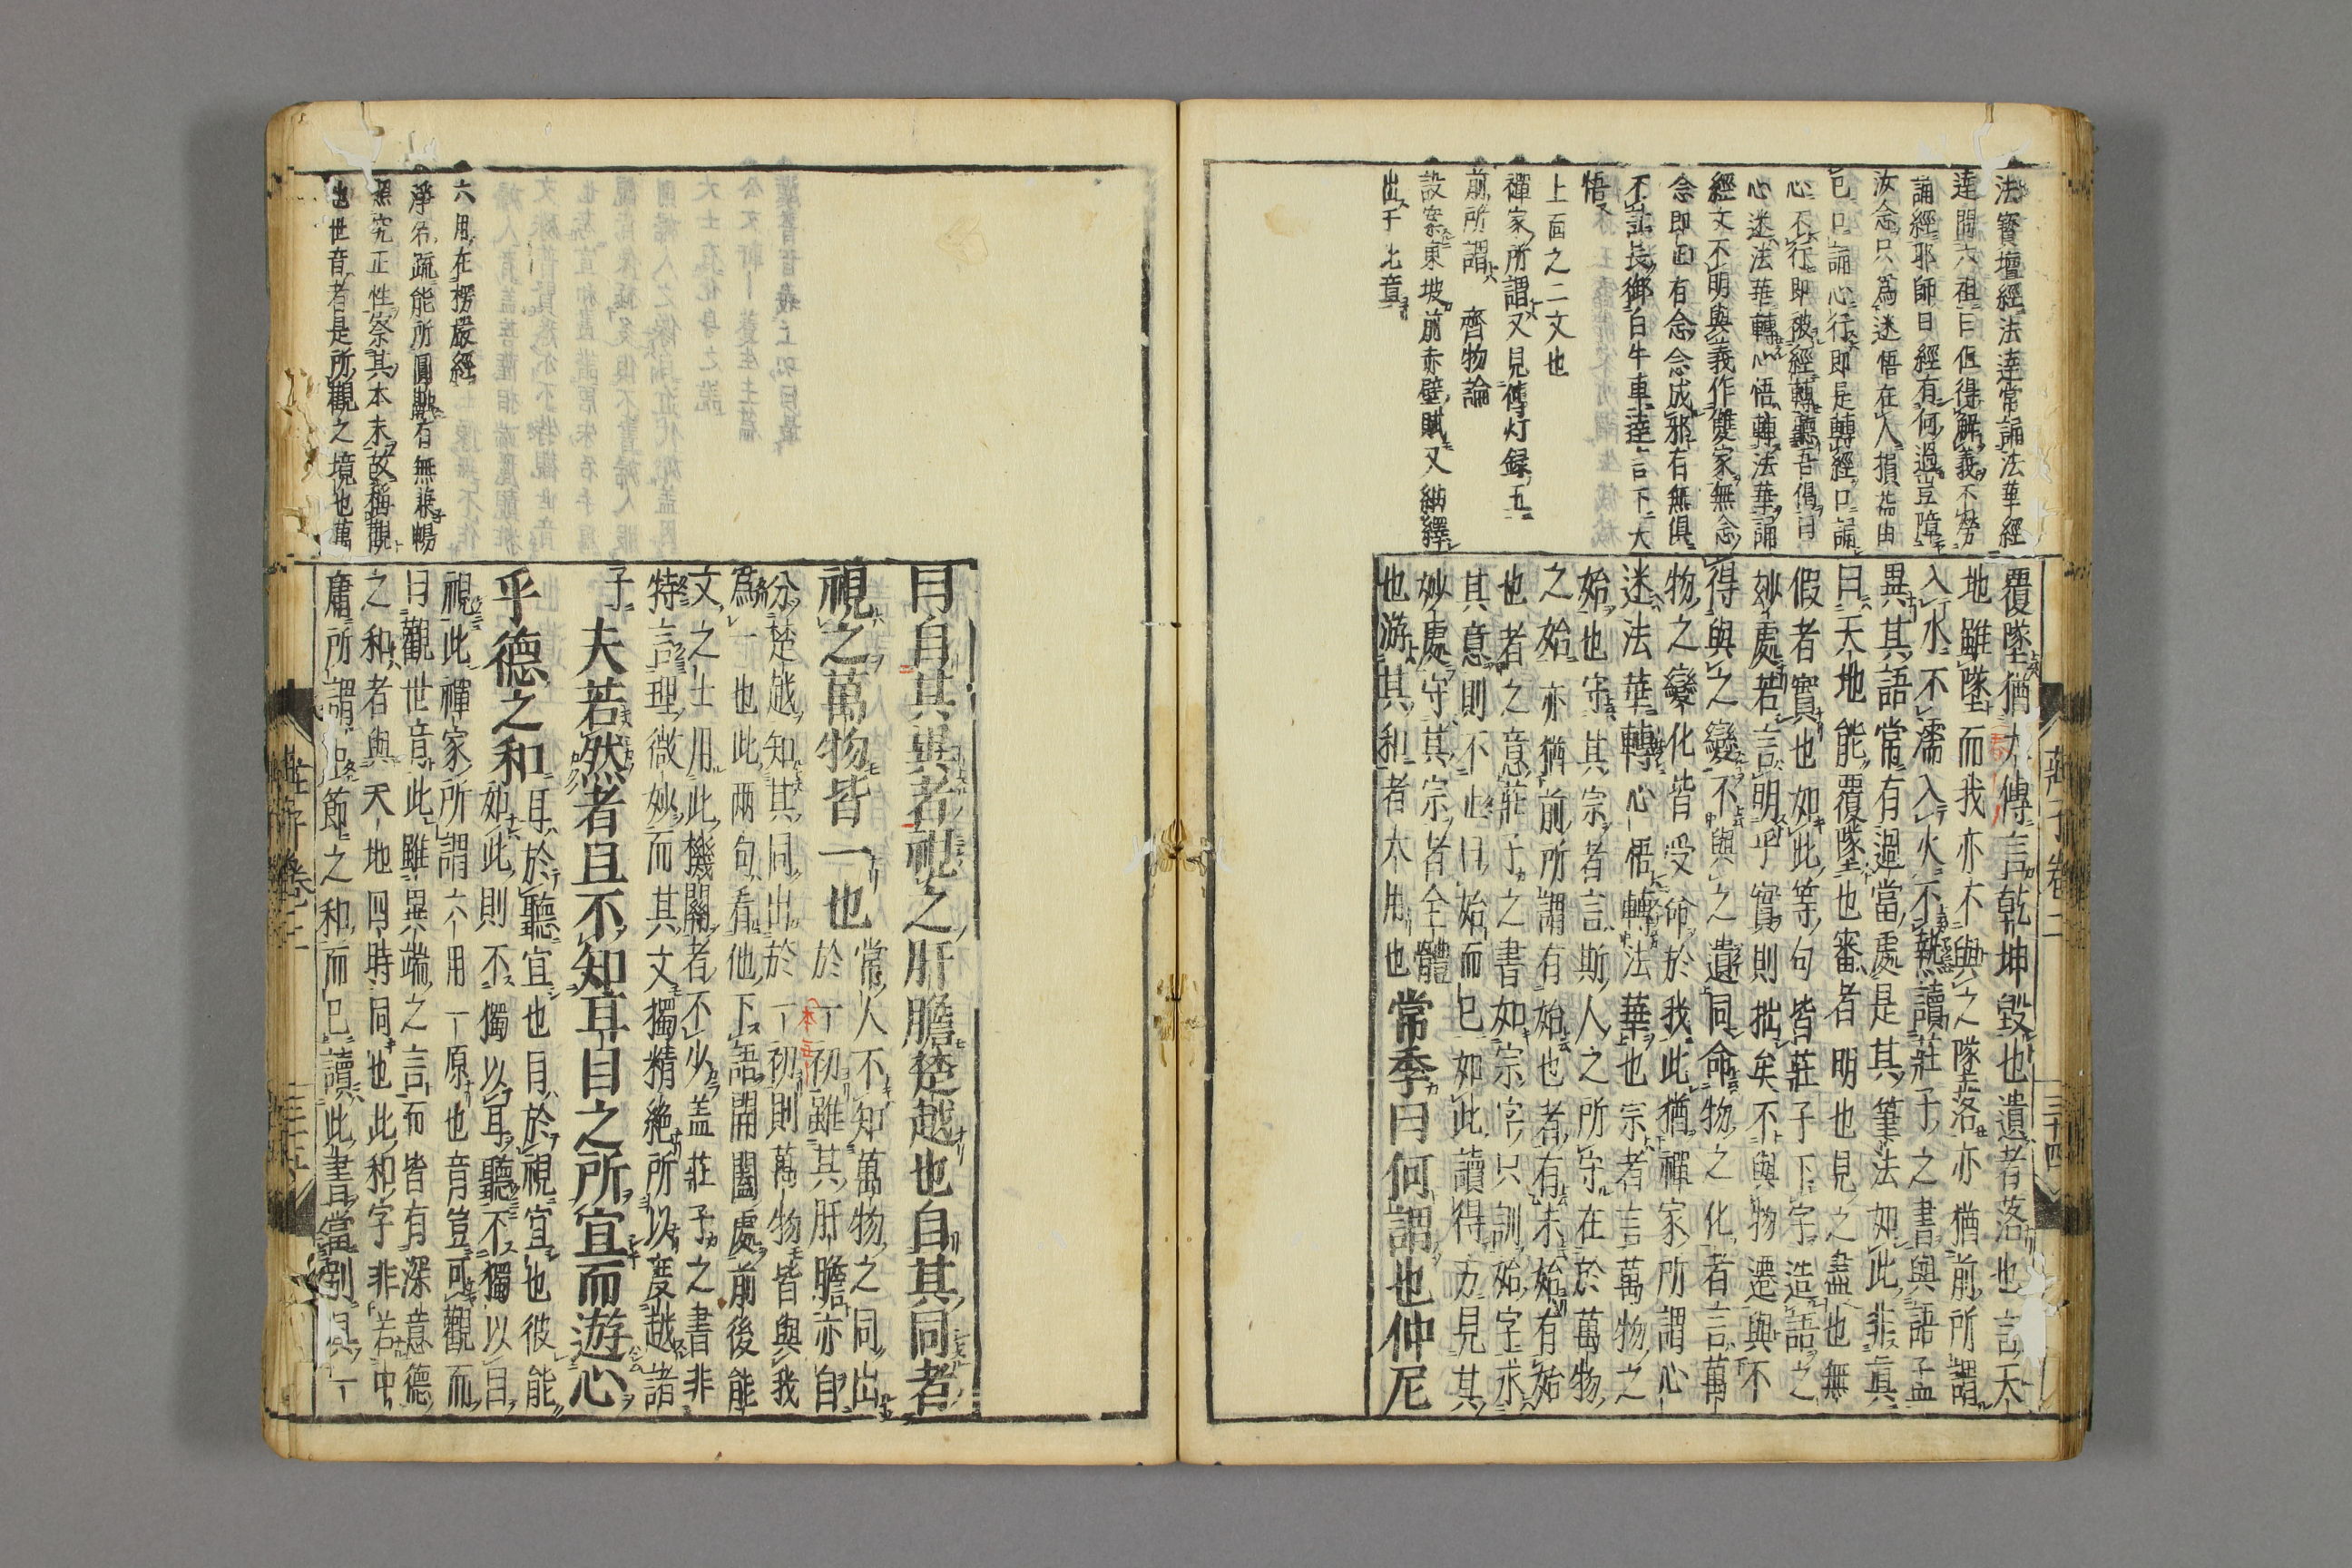 法寶壇經法達常誦法華經
達聞六祖曰但得解義不勞
誦經耶師曰經有何過豈障
汝念只爲迷悟在人損益由
己口誦心行即是轉經口誦
心不行即被經轉聽吾偈曰
心迷法華轉心悟轉法華誦
經文不明與義作讐家無念
念即正有念念成邪有無俱
不計長御白牛車達言下大
悟
上面之二文也
禪家所謂又見傳灯録五
前所謂 齊物論
設宗東坡前赤壁賦又紬繹
出于此章
覆墜猶大傳言乾坤毀也遺者落也言天
地雖墜而我亦不與之墜落亦猶前所謂
入水不濡入火不熱讀莊子之書與語孟
異其語常有過當處是其筆法如此非真
曰天地能覆墜也審者明也見之盡也無
假者實也如此等句皆莊子下字造語之
妙處若言明乎實則拙矣不與物遷與不
得與之變不與之遺同命物之化者言萬
物之變化皆受命於我此猶禪家所謂心
迷法華轉心悟轉法華也宗者言萬物之
始也守其宗者言斯人之所守在於萬物
之始亦猶前所謂有始也者有未始有始
也者之意莊子之書如宗字只訓始字求
其意則不止曰始而已如此讀得方見其
妙處守其宗者全體
也游其和者大用也 常季曰何謂也仲尼
莊子卷二 三十四
曰自其異者視之肝膽楚越也自其同者
視之萬物皆一也 常人不知萬物之同出
於一初雖其肝膽亦自
分楚越知其同出於一初則萬物皆與我
爲一也此兩句看他下語開闔處前後能
文之士用此機關者不少盖莊子之書非
特言理微妙而其文獨精絶所以度越諸
子
夫若然者且不知耳目之所宜而遊心
乎德之和 耳於聽宜也目於視宜也彼能
如此則不獨以耳聽不獨以目
視此禪家所謂六用一原也音豈可觀而
曰觀世音此雖異端之言而皆有深意德
之和者與天地四時同也此和字非若中
庸所謂中節之和而已讀此書當別具一
六用在楞嚴經
淨名疏能所圓融有無兼暢
照究正性察其本末故稱觀
世音者是所觀之境也萬
莊子卷二